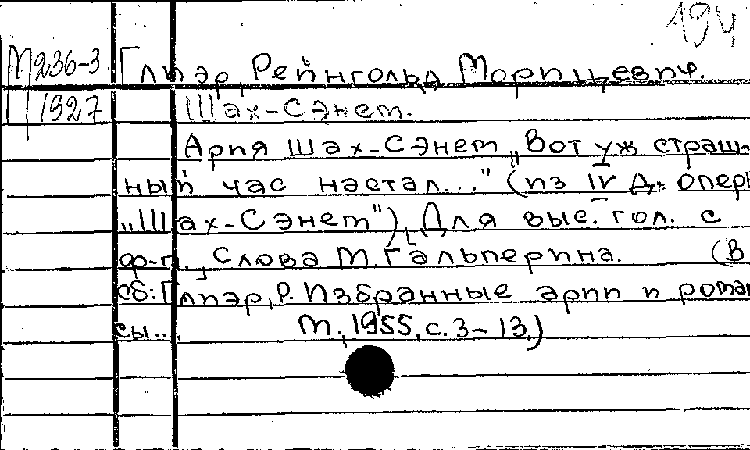 194
М236-3 Глиэр, Рейнгольд Морицевич.
П1927 Шах-Сэнем.
Ария Шах-Сэнем „Вот уж страш-
ный час настал..." (из IV д. опер
„Шах-Сэнем"), Для выс. гол. с
ф-п., Слова М. Гальперина. (В
сб: Глиэр, Р. Избранные арии и роман
сы... М., 1955, с. 3-13.)